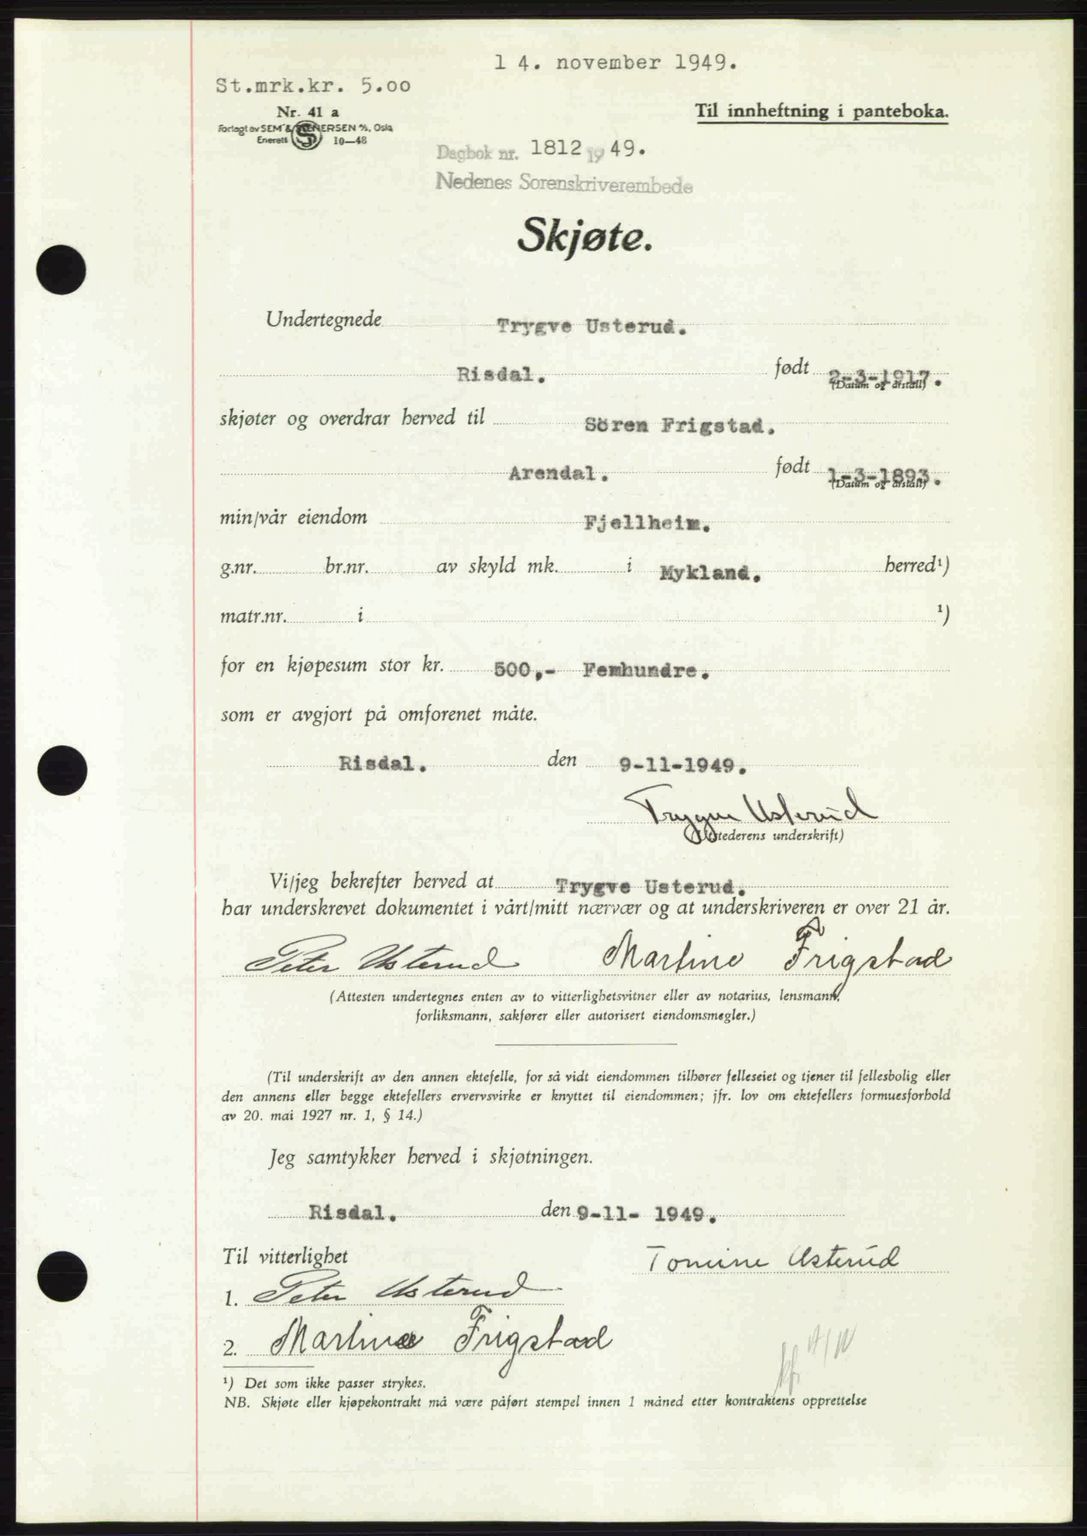 14. november 1949.
St.mrk.kr. 5.00
Nr. 41 a
Til innheftning i panteboka.
Forlagt av SEM & STENERSEN A/S, Oslo
Enerett S 10—48
Dagbok nr. 1812 19 49.
Nedenes Sorenskriverembede
Skjøte.
Undertegnede Trygve Usterud.
Risdal. født 2-3-1917.
(Datum og årstall)
skjøter og overdrar herved til Sören Frigstad.
Arendal. født 1-3-1893.
(Datum og årstall)
min/vår eiendom Fjellheim.
g.nr. br.nr. av skyld mk. i Mykland. herred¹)
matr.nr. i ¹)
for en kjøpesum stor kr. 500,- Femhundre.
som er avgjort på omforenet måte.
Risdal. den 9-11-1949.
Trygve Usterud
(Utstederens underskrift)
Vi/jeg bekrefter herved at Trygve Usterud.
har underskrevet dokumentet i vårt/mitt nærvær og at underskriveren er over 21 år.
Peter Usterud Martine Frigstad
(Attesten undertegnes enten av to vitterlighetsvitner eller av notarius, lensmann,
forliksmann, sakfører eller autorisert eiendomsmegler.)
(Til underskrift av den annen ektefelle, for så vidt eiendommen tilhører felleseiet og tjener til fellesbolig eller
den annens eller begge ektefellers ervervsvirke er knyttet til eiendommen; jfr. lov om ektefellers formuesforhold
av 20. mai 1927 nr. 1, § 14.)
Jeg samtykker herved i skjøtningen.
Risdal. den 9-11- 1949.
Til vitterlighet
Tomine Usterud
1. Peter Usterud
2. Martine Frigstad
¹) Det som ikke passer strykes.
NB. Skjøte eller kjøpekontrakt må være påført stempel innen 1 måned etter kontraktens opprettelse